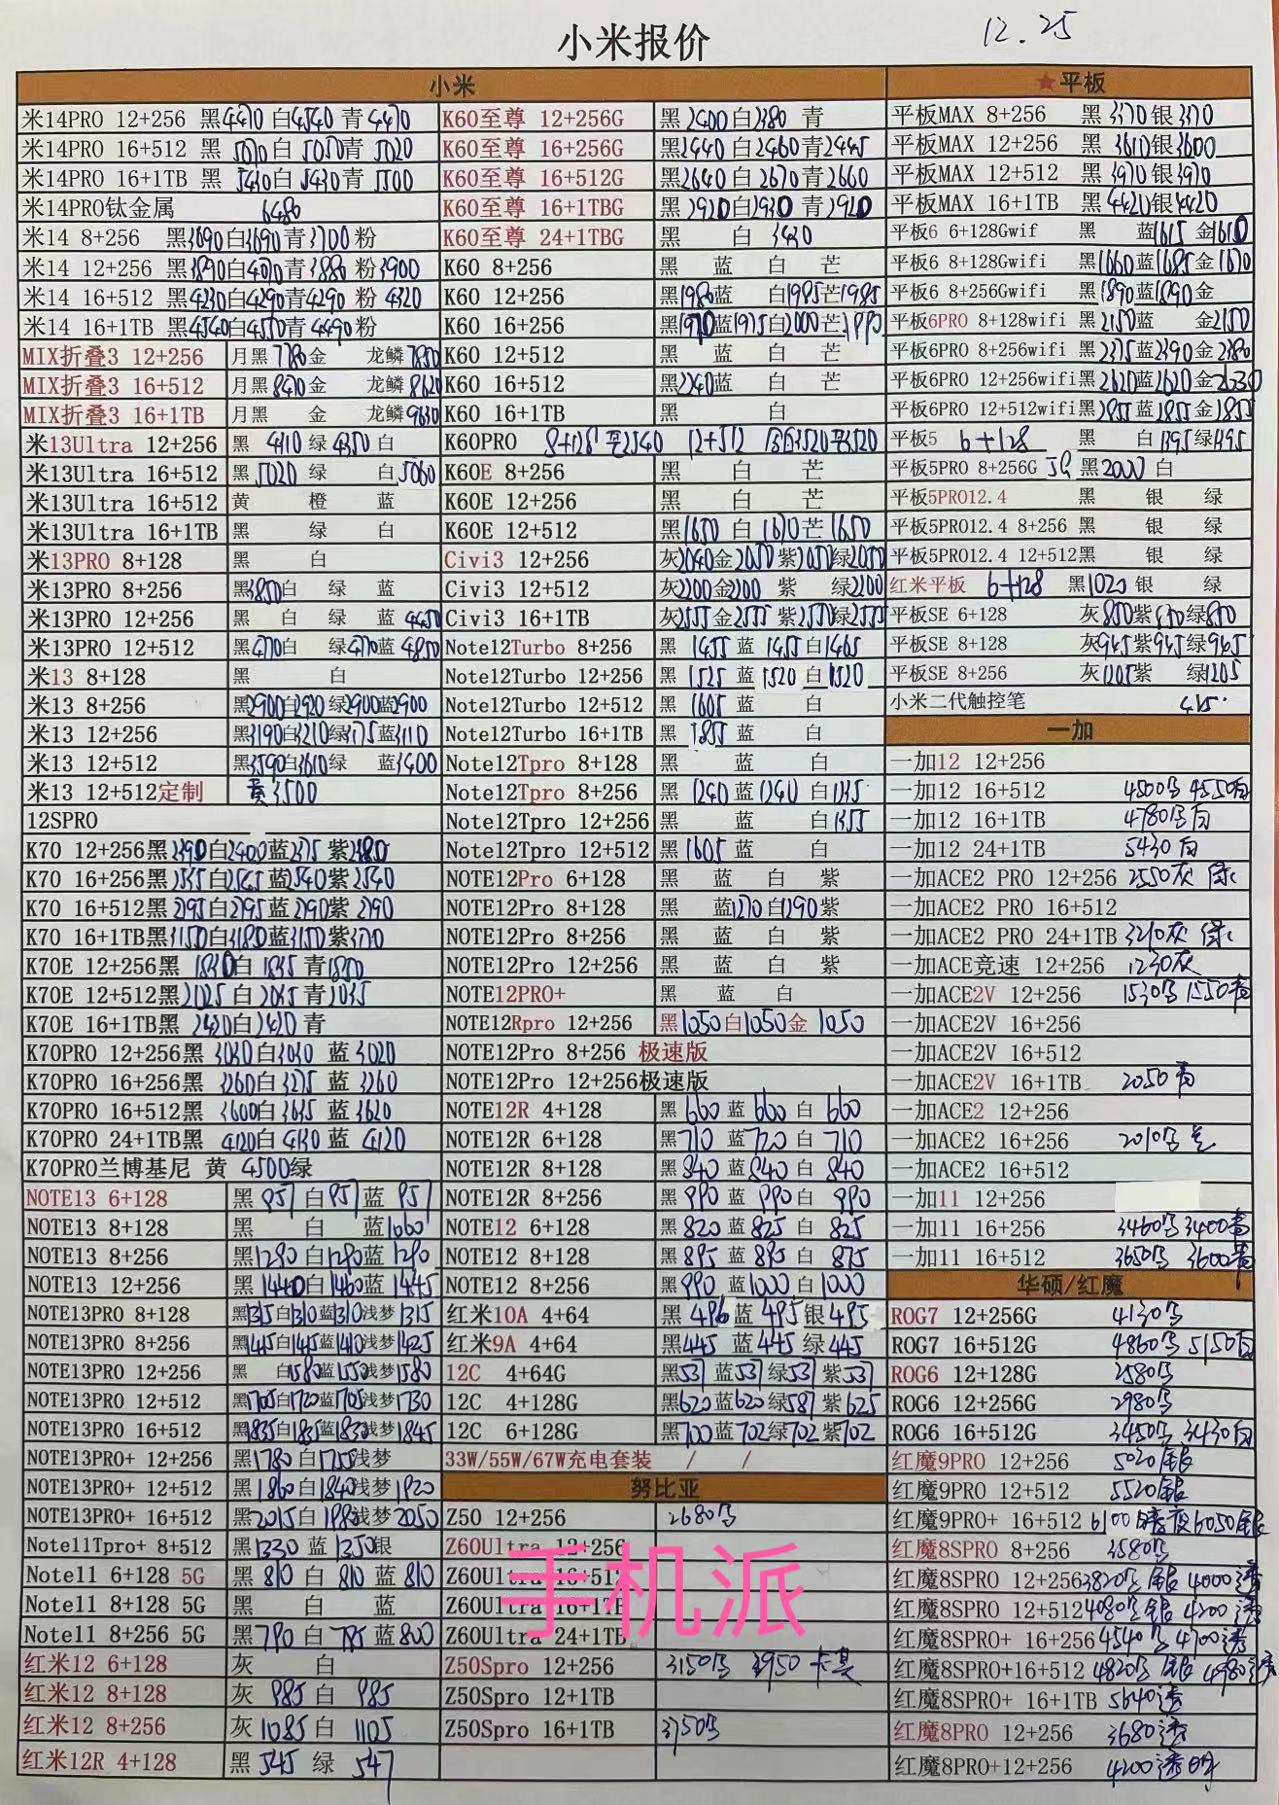 小米报价
12.25
小米
★平板
米14PRO 12+256 黑4470 白4540 青4470
K60至尊 12+256G 黑2400 白2380 青
平板MAX 8+256 黑3370 银3370
米14PRO 16+512 黑 白5050 青5020
K60至尊 16+256G 黑2440 白2460 青2445
平板MAX 12+256 黑3610 银3600
米14PRO 16+1TB 黑5430 白5430 青5500
K60至尊 16+512G 黑2640 白2670 青2660
平板MAX 12+512 黑3970 银3970
米14PRO钛金属 6480
K60至尊 16+1TBG 黑2920 白2930 青2920
平板MAX 16+1TB 黑4420 银4420
米14 8+256 黑3690 白3690 青3700 粉
K60至尊 24+1TBG 黑 白3430
平板6 6+128Gwif 黑 蓝1615 金1610
米14 12+256 黑3890 白4070 青3880 粉3900
K60 8+256 黑 蓝 白 芒
平板6 8+128Gwifi 黑1660 蓝1685 金1670
米14 16+512 黑4230 白4290 青4290 粉4320
K60 12+256 黑1980 蓝 白1985 芒1985
平板6 8+256Gwifi 黑1890 蓝1890 金
米14 16+1TB 黑4540 白4550 青4490 粉
K60 16+256 黑1970 蓝1975 白2000 芒1990
平板6PRO 8+128wifi 黑2150 蓝 金2150
MIX折叠3 12+256 月黑7780 金 龙鳞7850
K60 12+512 黑 蓝 白 芒
平板6PRO 8+256wifi 黑2375 蓝2390 金2380
MIX折叠3 16+512 月黑8470 金 龙鳞8620
K60 16+512 黑2240 蓝 白 芒
平板6PRO 12+256wifi 黑2620 蓝2620 金2630
MIX折叠3 16+1TB 月黑 金 龙鳞9630
K60 16+1TB 黑 白
平板6PRO 12+512wifi 黑2855 蓝2855 金2855
米13Ultra 12+256 黑4310 绿4350 白
K60PRO 8+128 2540 12+512 3520 3520
平板5 6+128 黑 白1395 绿1395
米13Ultra 16+512 黑5020 绿 白5060
K60E 8+256 黑 白 芒
平板5PRO 8+256G 5G 黑2000 白
米13Ultra 16+512 黄 橙 蓝
K60E 12+256 黑 白 芒
平板5PRO12.4 黑 银 绿
米13Ultra 16+1TB 黑 绿 白
K60E 12+512 黑1650 白1670 芒1650
平板5PRO12.4 8+256 黑 银 绿
米13PRO 8+128 黑 白
Civi3 12+256 灰2040 金2050 紫2050 绿2050
平板5PRO12.4 12+512 黑 银 绿
米13PRO 8+256 黑3850 白 绿 蓝
Civi3 12+512 灰2200 金2200 紫 绿2200
红米平板 6+128 黑1020 银 绿
米13PRO 12+256 黑 白 绿 蓝4450
Civi3 16+1TB 灰2555 金2555 紫2550 绿2555
平板SE 6+128 灰850 紫 绿850
米13PRO 12+512 黑 白 绿 蓝4850
Note12Turbo 8+256 黑1455 蓝1455 白1465
平板SE 8+128 灰945 紫945 绿945
米13 8+128 黑 白
Note12Turbo 12+256 黑1525 蓝1520 白1520
平板SE 8+256 灰1205 紫 绿1205
米13 8+256 黑2900 白2920 绿2900 蓝2900
Note12Turbo 12+512 黑1605 蓝 白
小米二代触控笔 415
米13 12+256 黑3190 白3210 绿3175 蓝3110
Note12Turbo 16+1TB 黑1855 蓝 白
一加
米13 12+512 黑3590 白3610 绿 蓝3400
Note12Tpro 8+128 黑 蓝 白
一加12 12+256
米13 12+512定制 黄3500
Note12Tpro 8+256 黑1240 蓝1241 白
一加12 16+512 4500 4550白
12SPRO
Note12Tpro 12+256 黑 蓝 白1355
一加12 16+1TB 4780 白
K70 12+256 黑2390 白2400 蓝2375 紫2380
Note12Tpro 12+512 黑1605 蓝 白
一加12 24+1TB 5430白
K70 16+256 黑2535 白2565 蓝2540 紫2540
NOTE12Pro 6+128 黑 蓝 白 紫
一加ACE2 PRO 12+256 2550灰 绿
K70 16+512 黑2795 白2795 蓝2790 紫2790
NOTE12Pro 8+128 黑 蓝1270 白1290 紫
一加ACE2 PRO 16+512
K70 16+1TB 黑3150 白3180 蓝3150 紫3170
NOTE12Pro 8+256 黑 蓝 白 紫
一加ACE2 PRO 24+1TB 3210灰 绿
K70E 12+256 黑1830 白1835 青1850
NOTE12Pro 12+256 黑 蓝 白 紫
一加ACE竞速 12+256 1230灰
K70E 12+512 黑2025 白2035 青2035
NOTE12PRO+ 黑 蓝 白
一加ACE2V 12+256 1530 1550青
K70E 16+1TB 黑2420 白2420 青
NOTE12Rpro 12+256 黑1050 白1050 金1050
一加ACE2V 16+256
K70PRO 12+256 黑3030 白3030 蓝3020
NOTE12Pro 8+256 极速版
一加ACE2V 16+512
K70PRO 16+256 黑3260 白3275 蓝3260
NOTE12Pro 12+256极速版
一加ACE2V 16+1TB 2050青
K70PRO 16+512 黑3600 白3615 蓝3620
NOTE12R 4+128 黑660 蓝660 白660
一加ACE2 12+256
K70PRO 24+1TB 黑4120 白4130 蓝4120
NOTE12R 6+128 黑710 蓝720 白710
一加ACE2 16+256 2010
K70PRO兰博基尼 黄4500 绿
NOTE12R 8+128 黑840 蓝840 白840
一加ACE2 16+512
NOTE13 6+128 黑951 白951 蓝951
NOTE12R 8+256 黑990 蓝990 白990
一加11 12+256
NOTE13 8+128 黑 白 蓝1060
NOTE12 6+128 黑820 蓝825 白825
一加11 16+256 3460 3400青
NOTE13 8+256 黑1280 白1290 蓝1290
NOTE12 8+128 黑895 蓝895 白875
一加11 16+512 3650 3600青
NOTE13 12+256 黑1440 白1460 蓝1445
NOTE12 8+256 黑990 蓝1000 白1000
华硕/红魔
NOTE13PRO 8+128 黑1315 白1310 蓝1310 浅梦1315
红米10A 4+64 黑496 蓝495 银495
ROG7 12+256G 4130
NOTE13PRO 8+256 黑1445 白1445 蓝1410 浅梦1425
红米9A 4+64 黑445 蓝445 绿445
ROG7 16+512G 4860 5150白
NOTE13PRO 12+256 黑 白1580 蓝1550 浅梦1580
12C 4+64G 黑531 蓝531 绿531 紫531
ROG6 12+128G 2580
NOTE13PRO 12+512 黑1705 白1720 蓝1705 浅梦1730
12C 4+128G 黑620 蓝620 绿587 紫625
ROG6 12+256G 2980
NOTE13PRO 16+512 黑1835 白1835 蓝1830 浅梦1845
12C 6+128G 黑700 蓝702 绿702 紫702
ROG6 16+512G 3450 3430白
NOTE13PRO+ 12+256 黑1780 白1755 浅梦
33W/55W/67W充电套装 / /
红魔9PRO 12+256 5020银
NOTE13PRO+ 12+512 黑1860 白1840 浅梦1920
努比亚
红魔9PRO 12+512 5520银
NOTE13PRO+ 16+512 黑2015 白1980 浅梦2050
Z50 12+256 2680
红魔9PRO+ 16+512 6100暗夜6050银
Note11Tpro+ 8+512 黑1330 蓝1350 银
Z60Ultra 12+256
红魔8SPRO 8+256 3580
手机派
Note11 6+128 5G 黑810 白810 蓝810
Z60Ultra 16+512
红魔8SPRO 12+256 3820 银 4000透
Note11 8+128 5G 黑 白 蓝
Z60Ultra 16+1TB
红魔8SPRO 12+512 4080 银 4200透
Note11 8+256 5G 黑790 白795 蓝800
Z60Ultra 24+1TB
红魔8SPRO+ 16+256 4540 4700透
红米12 6+128 灰 白
Z50Spro 12+256 3150 3950
红魔8SPRO+16+512 4820 银 4980透
红米12 8+128 灰985 白985
Z50Spro 12+1TB
红魔8SPRO+ 16+1TB 5640透
红米12 8+256 灰1085 白1105
Z50Spro 16+1TB 3750
红魔8PRO 12+256 3680透
红米12R 4+128 黑545 绿547
红魔8PRO+12+256 4200透明